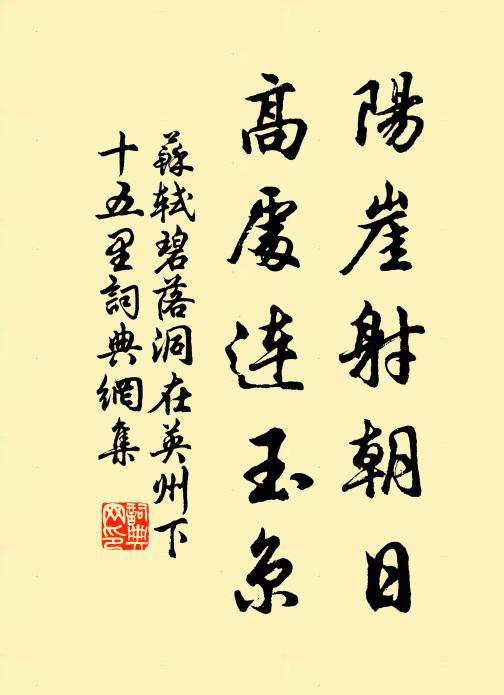 陽崖射朝日
高處連玉京
蘇軾碧落洞在英州下
十五里詞典網集
詞典
网印